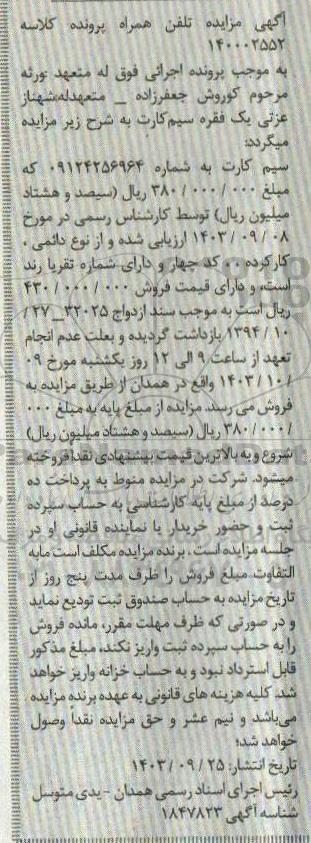 آگهی مزایده تلفن همراه پرونده کلاسه
۱۴۰۰۰۲۵۵۲
به موجب پرونده اجرائی فوق له متعهد ،ورثه
مرحوم کوروش جعفرزاده _ متعهدله،شهناز
عزتی یک فقره سیم‌کارت به شرح زیر مزایده
میگردد:
سیم کارت به شماره ۰۹۱۲۴۲۵۶۹۶۴ که
مبلغ ۰۰۰ / ۰۰۰ / ۳۸۰ ریال (سیصد و هشتاد
میلیون ریال) توسط کارشناس رسمی در مورخ
۰۸ / ۰۹ / ۱۴۰۳ ارزیابی شده و از نوع دائمی ،
کارکرده ، کد چهار و دارای شماره تقریبا رند
است، و دارای قیمت فروش ۰۰۰ / ۰۰۰ / ۴۳۰
ریال است به موجب سند ازدواج ۳۲۰۲۵_ ۲۷ /
۱۰ / ۱۳۹۴ بازداشت گردیده و بعلت عدم انجام
تعهد از ساعت ۹ الی ۱۲ روز یکشنبه مورخ ۰۹
/ ۱۰ / ۱۴۰۳ واقع در همدان از طریق مزایده به
فروش می رسد. مزایده از مبلغ پایه به مبلغ ۰۰۰
/ ۰۰۰ / ۳۸۰ ریال (سیصد و هشتاد میلیون ریال)
شروع و به بالاترین قیمت پیشنهادی نقدا فروخته
میشود. شرکت در مزایده منوط به پرداخت ده
درصد از مبلغ پایه کارشناسی به حساب سپرده
ثبت و حضور خریدار یا نماینده قانونی او در
جلسه مزایده است . برنده مزایده مکلف است مابه
التفاوت مبلغ فروش را ظرف مدت پنج روز از
تاریخ مزایده به حساب صندوق ثبت تودیع نماید
و در صورتی که ظرف مهلت مقرر، مانده فروش
را به حساب سپرده ثبت واریز نکند، مبلغ مذکور
قابل استرداد نبود و به حساب خزانه واریز خواهد
شد. کلیه هزینه های قانونی به عهده برنده مزایده
می‌باشد و نیم عشر و حق مزایده نقدا وصول
خواهد شد؛
تاریخ انتشار: ۲۵ / ۰۹ / ۱۴۰۳
رئیس اجرای اسناد رسمی همدان - یدی متوسل
شناسه آگهی ۱۸۴۷۸۲۳